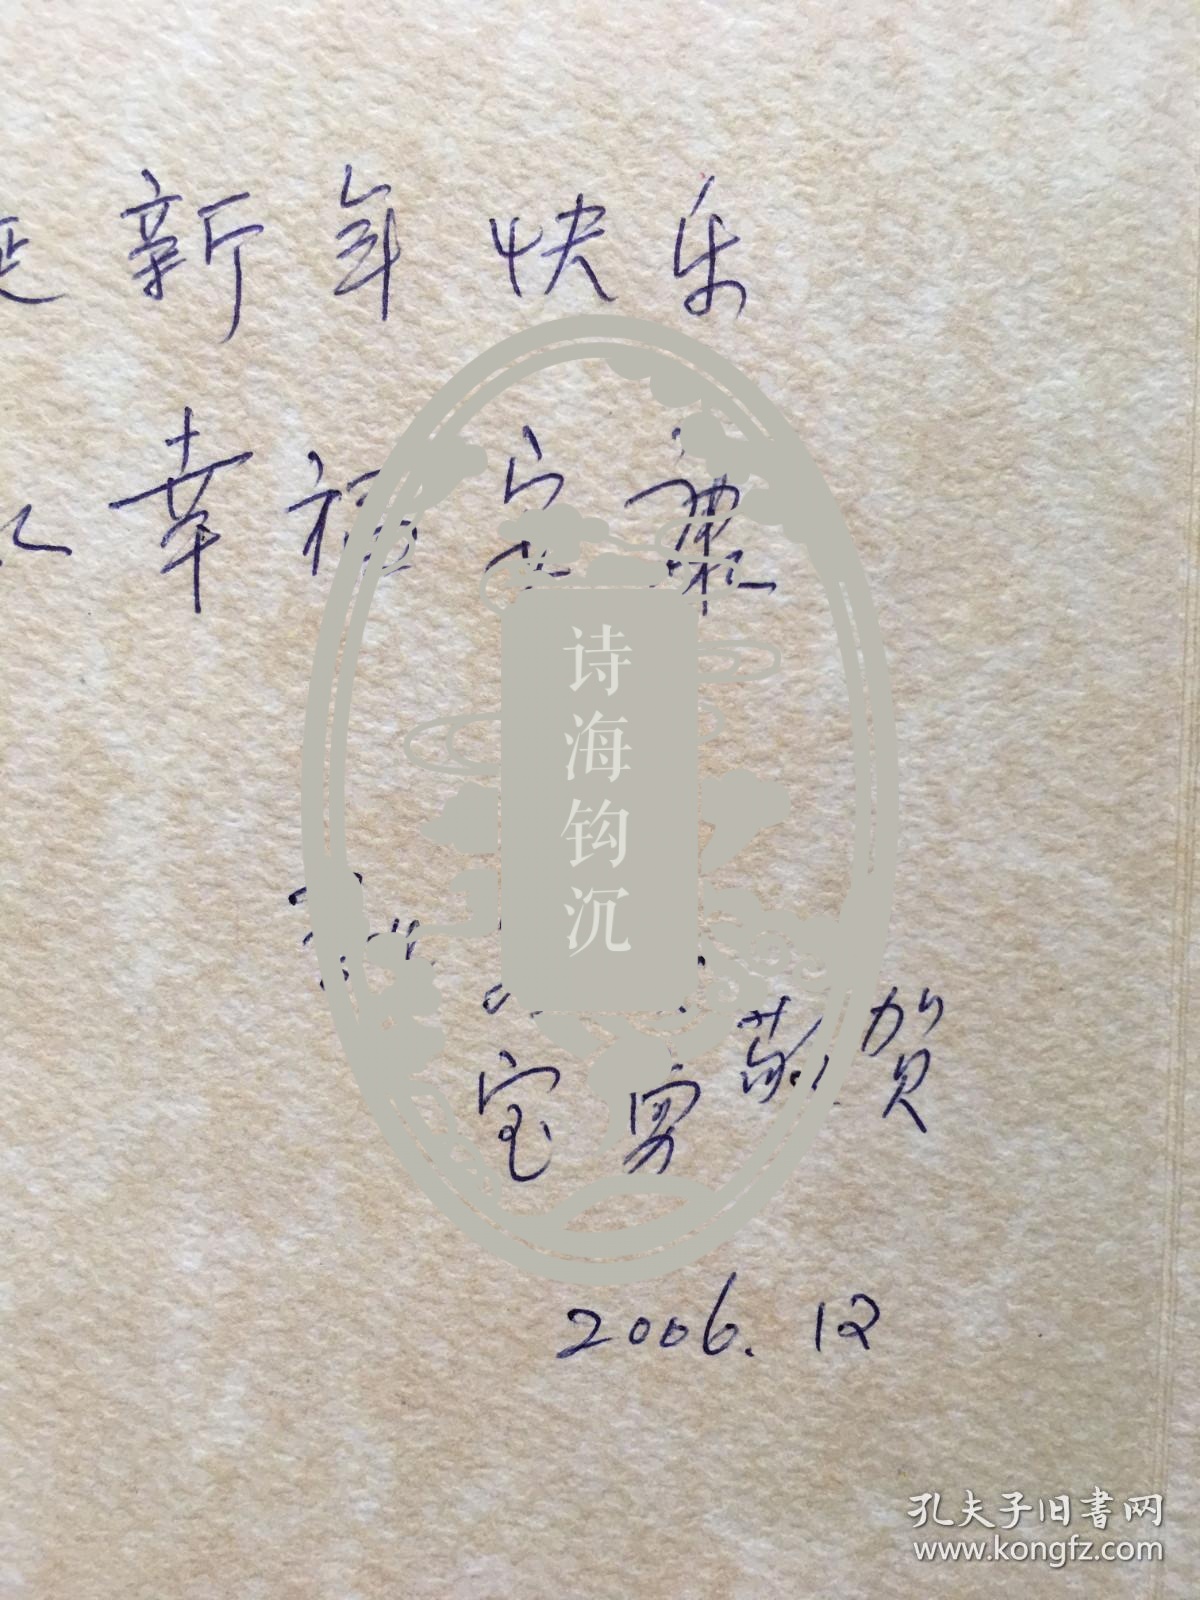 新年快乐
幸福安康
诗海钩沉
敬贺
宝男
2006.12
孔夫子旧书网
www.kongfz.com